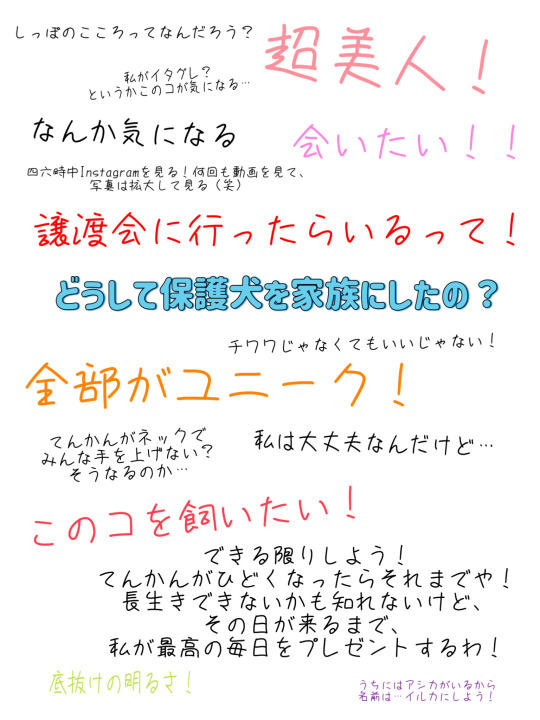 しっぽのこころってなんだろう？
超美人！
私がイタグレ？
というかこのコが気になる…
なんか気になる
会いたい！！
四六時中Instagramを見る！何回も動画を見て、
写真は拡大して見る（笑）
譲渡会に行ったらいるって！
どうして保護犬を家族にしたの？
チワワじゃなくてもいいじゃない！
全部がユニーク！
てんかんがネックで
みんな手を上げない？
そうなるのか…
私は大丈夫なんだけど…
このコを飼いたい！
できる限りしよう！
てんかんがひどくなったらそれまでや！
長生きできないかも知れないけど、
その日が来るまで、
私が最高の毎日をプレゼントするわ！
底抜けの明るさ！
うちにはアシカがいるから
名前は…イルカにしよう！